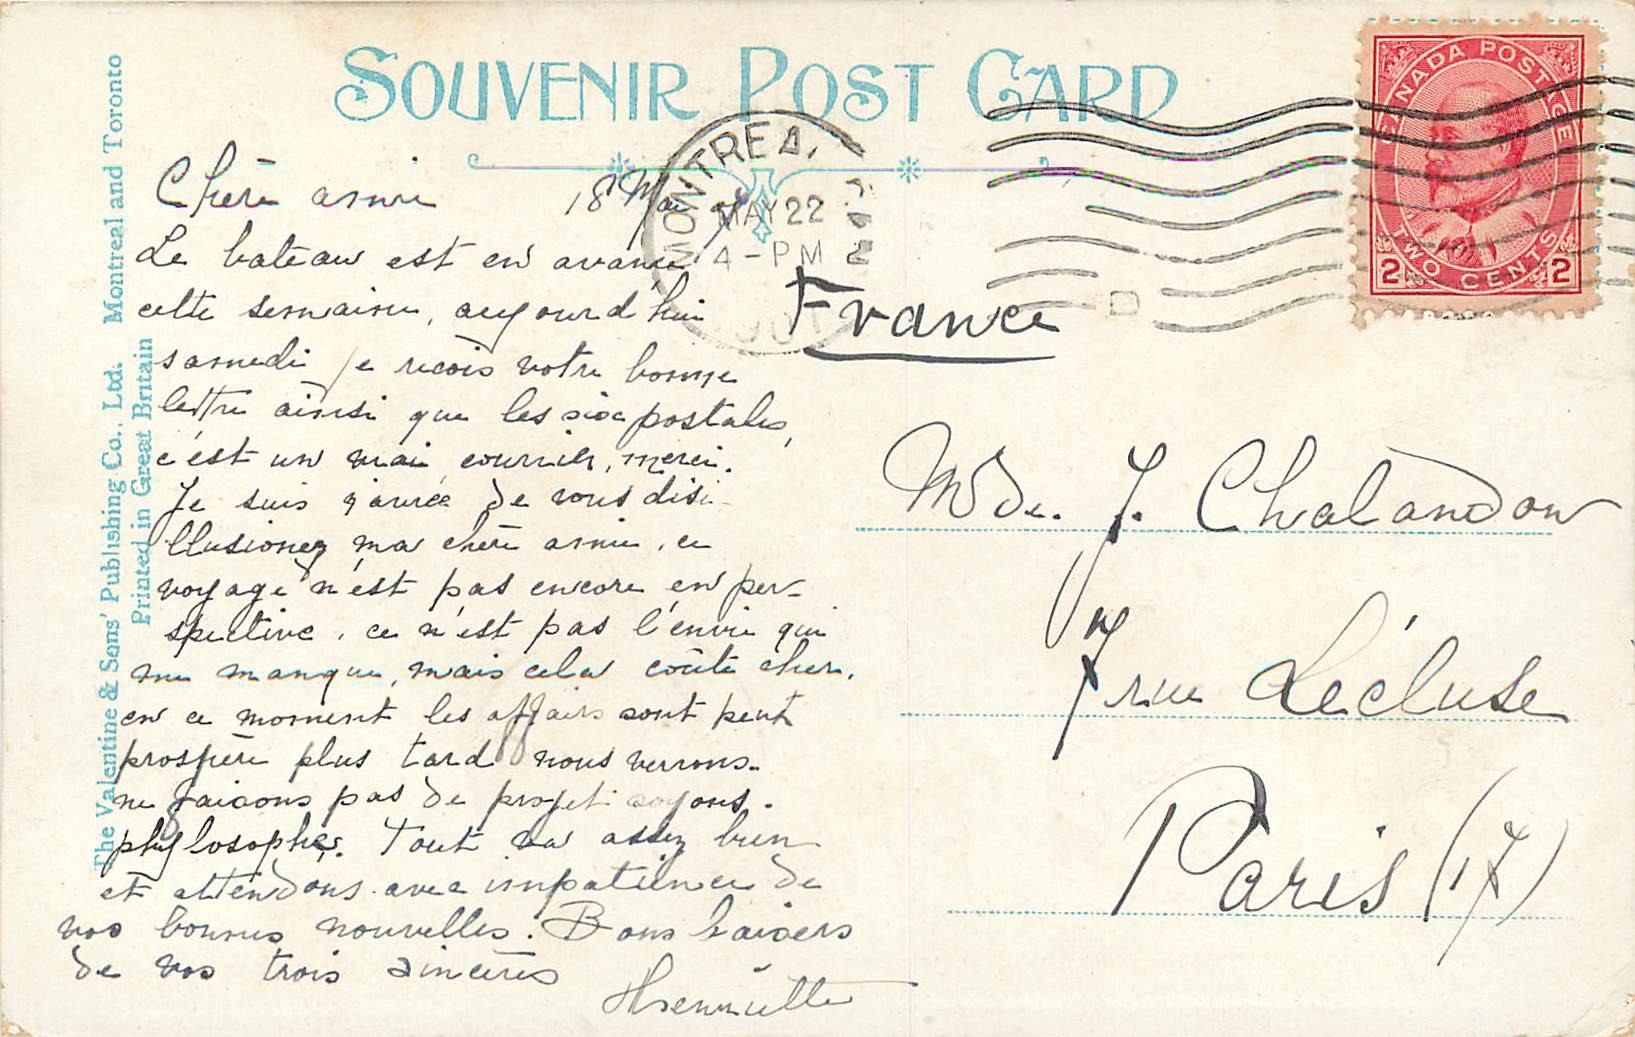 SOUVENIR POST CARD
The Valentine & Sons' Publishing Co., Ltd. Montreal and Toronto
Printed in Great Britain
CANADA POSTAGE
TWO CENTS
2 2
MONTREAL
MAY 22
4-PM
Chère amie 18 Mai
Le bateau est en avance
cette semaine, aujourd'hui
samedi je reçois votre bonne
lettre ainsi que les six postales,
c'est un vrai courrier, merci.
Je suis navrée de vous disi-
llusionez ma chère amie, ce
voyage n'est pas encore en per-
spective, ce n'est pas l'envie qui
me manque, mais cela coûte cher.
en ce moment les affairs sont peut
prospère plus tard nous verrons.
ne faisons pas de projet soyons.
phylosophes. Tout va assez bien
et attendons avec impatience de
vos bonnes nouvelles. Bons baisers
de vos trois sincères
Henriette
France
Mde. J. Chalandon
7 rue Lécluse
Paris (17)